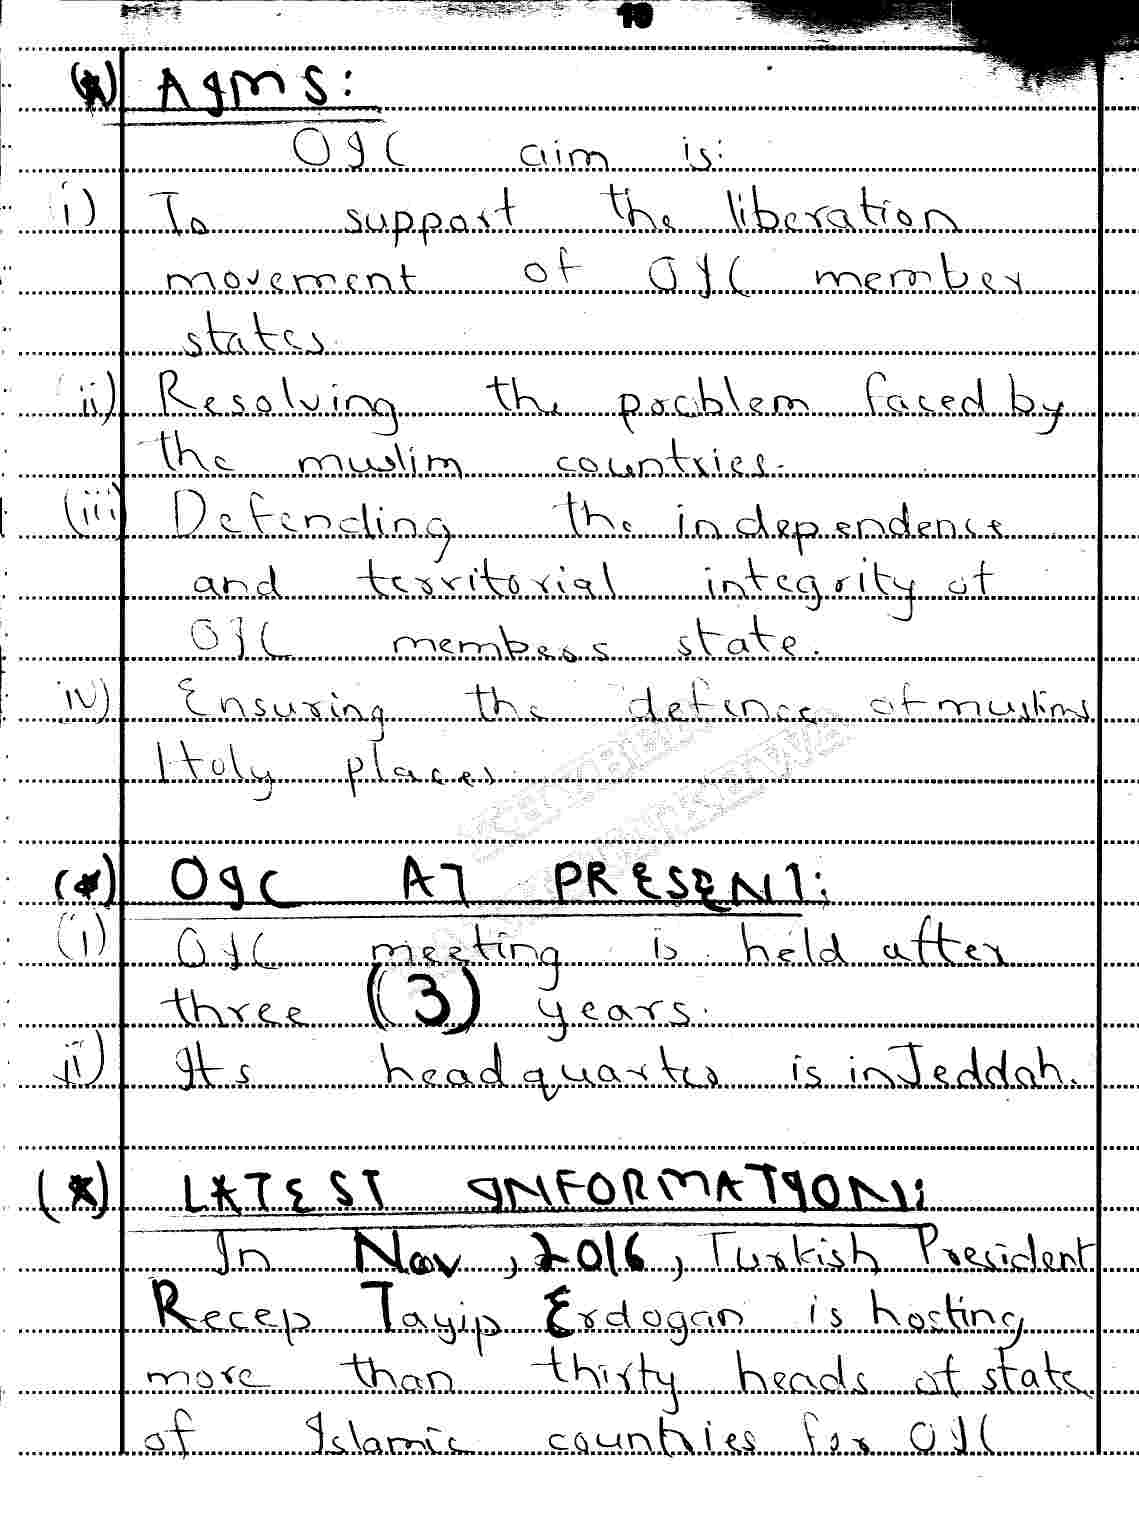 10
(*) AIMS:
OIC aim is:
i) To support the liberation
movement of OIC member
states.
ii) Resolving the problem faced by
the muslim countries.
(iii) Defending the independence
and territorial integrity of
OIC members state.
iv) Ensuring the defence of muslims
Holy places.
KHYBER
PAKHTUNKHWA
(*) OIC AT PRESENT:
(i) OIC meeting is held after
three (3) years.
ii) Its headquarter is in Jeddah.
(*) LATEST INFORMATION:
In Nov, 2016, Turkish President
Recep Tayip Erdogan is hosting
more than thirty heads of state
of Islamic countries for OIC